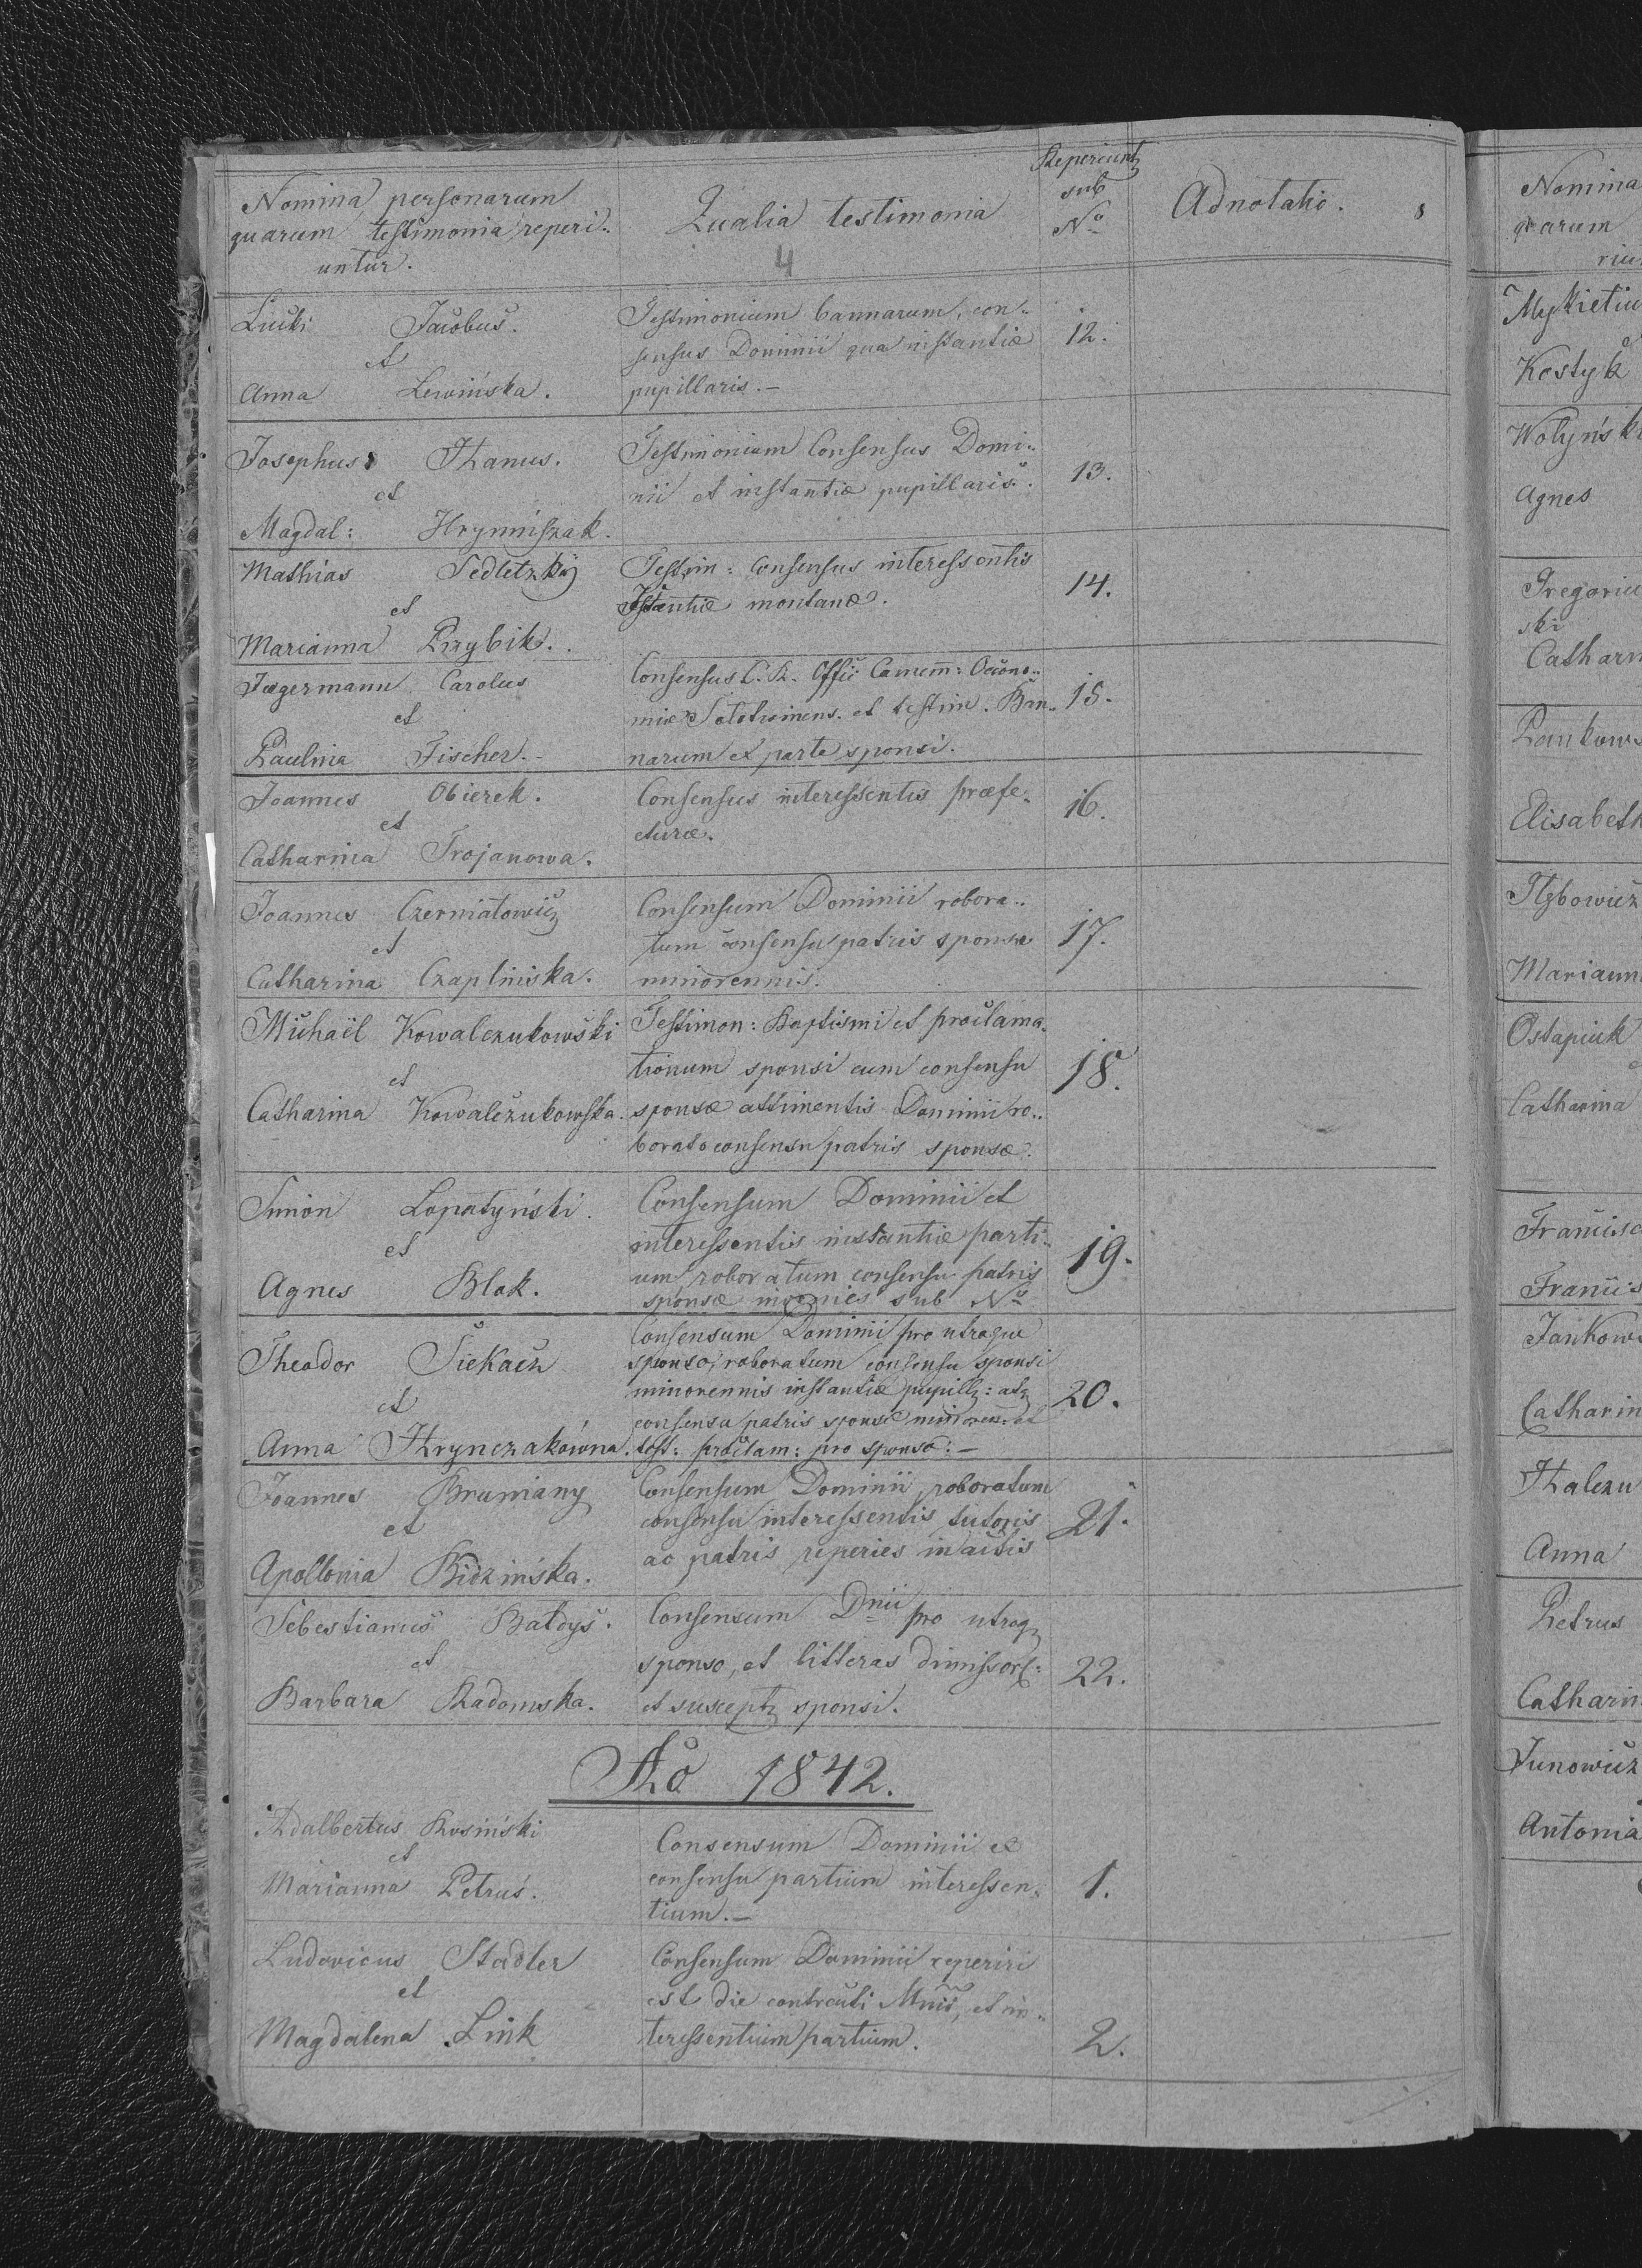 Nomina personarum
quarum testimonia reperi..
untur.
Qualia testimonia
4
Reperiunt
sub
No
Adnotatio.
Liuski Jacobus.
et
Anna Lewińska.
Testimonium bannarum, con..
sensus Dominii qua instantiæ
pupillaris.—
12.
Josephus Hanus.
et
Magdal: Hrymniszak.
Testimonium Consensus Domi..
nii et instantiæ pupillaris.
13.
Mathias Sedletzky
et
Marianna Przybik.
Testim: Consensus interessentis
montanæ.
14.
Jægermann Carolus
et
Paulina Fischer.-
Consensus C. R. Offic Camem: Oecono..
miæ et testim. Ban..
narum ex parte sponsi.
15.
Joannes Obierek.
et
Catharina Trojanowa.
Consensus interessentis præfe..
cturæ.
16.
Joannes Czerniatowicz
et
Catharina Czaplinska.
Consensum Dominii robora..
tum consensu patris sponsæ
minorennis.
17.
Michaël Kowalczukowski
et
Catharina Kowalczukowska.
Testimon: Baptismi et proclama..
tionum sponsi cum consensu
sponsæ attinentis Dominii ro..
borato consensu patris sponsæ.
18.
Simon Lopatyński.
et
Agnes Blak.
Consensum Dominii et
interessentis instantiæ parti..
um roboratum consensu patris
sponsæ invenies sub No
19.
Theodor Siekacz
et
Anna Hrynczakówna.
Consensum Dominii pro utroque
sponso, roboratum consensu sponsi
minorennis instantiæ pupill: atq
consensu patris sponsæ minoren: et
test: proclam: pro sponso:—
20.
Joannes Bruniany
et
Apollonia Bidzińska.
Consensum Dominii, roboratum
consensu interessentis tutoris
ac patris reperies in actis
21.
Sebestianus Bałdys.
et
Barbara Radomska.
Consensum Dnii pro utroq
sponso, et litteras dimissor:
et suscept sponsi.
22.
Ao 1842.
Adalbertus Rosiński
et
Marianna Petruś.
Consensum Dominii et
consensu partium interessen..
tium.—
1.
Ludovicus Stadler
et
Magdalena Link
Consensum Dominii reperiri
est die contracti Mnii, et in..
teressentium partium.
2.
Nomina
quarum
riu
Mykietiu
Kostyk
Wołyńsk
Agnes
Gregoriu
ski
Cathar
Pankows
Elisabeth
Marian
Ostapiuk
Catharina
Francisc
Francis
Jankow
Catharin
Halczu
Anna
Petrus
Catharin
Junowicz
Antonia